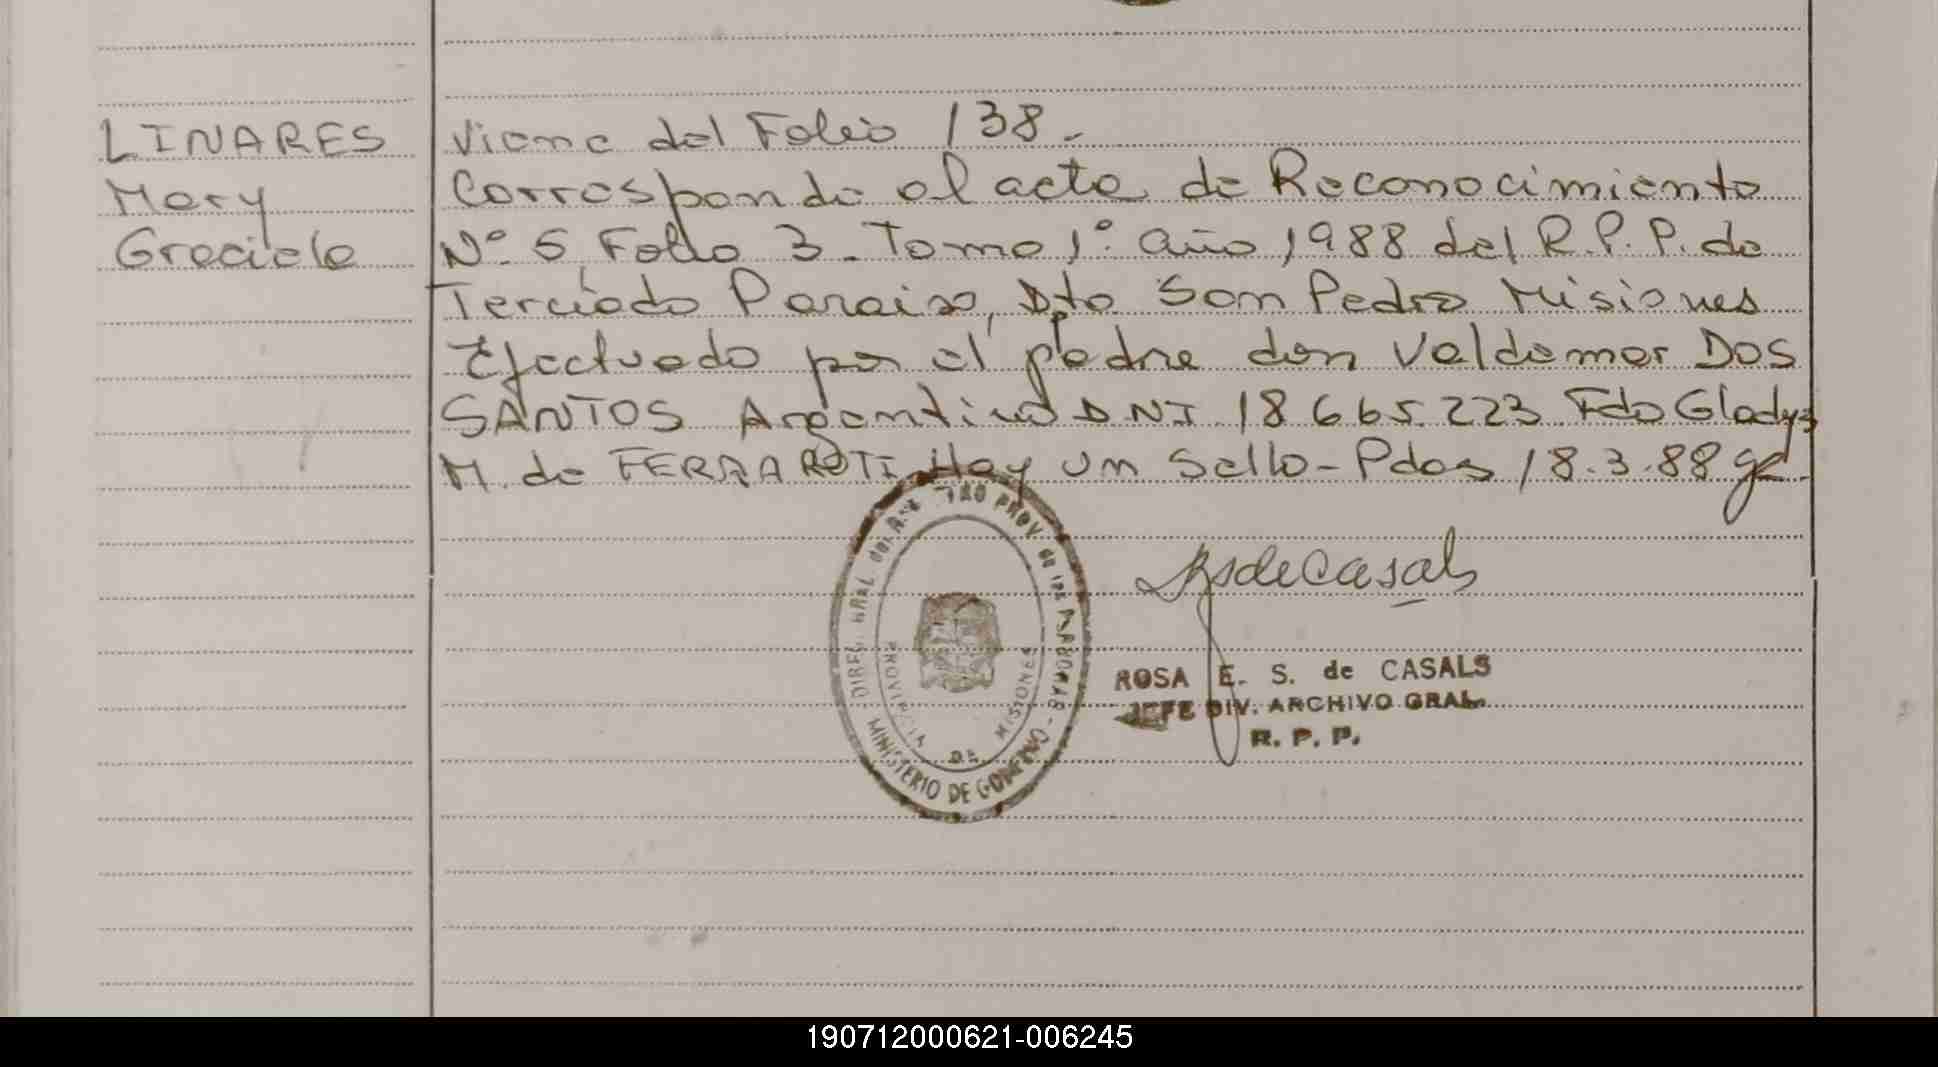 LINARES
Mary
Graciela
Viene del Folio 138.
Corresponde al acta de Reconocimiento
Nº 5 Folio 3. Tomo 1º año 1988 del R.P.P. de
Terciado Paraiso, Dto San Pedro Misiones
Efectuado por el padre don Valdemar DOS
SANTOS Argentino DNI 18 665.223 Fdo Gladys
M. de FERRAROTI Hay un Sello - Pdas 18.3.88
DIREC. GRAL. del PROV. de las
MINISTERIO DE GOBIERNO
PROVINCIA DE MISIONES
RSdeCasals
ROSA E. S. de CASALS
JEFE DIV. ARCHIVO GRAL.
R. P. P.
190712000621-006245